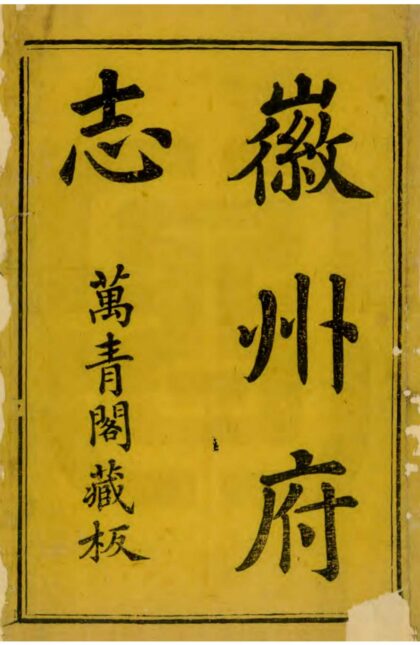 徽州府
志
萬青閣藏板